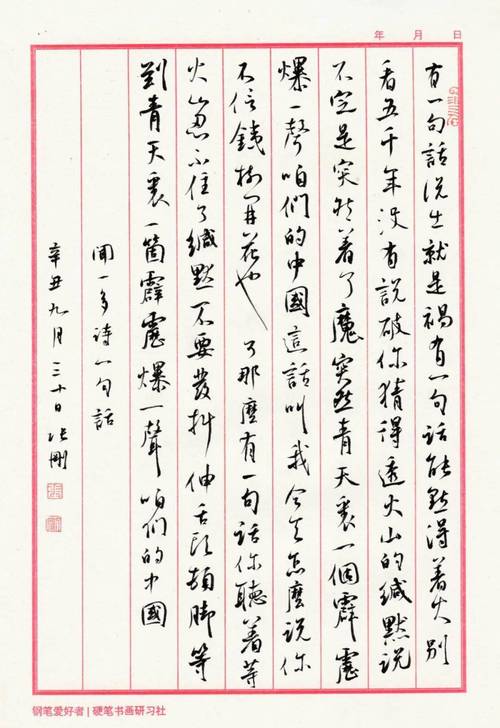 年 月 日
有一句話說出就是禍有一句話能點得着火別
看五千年沒有說破你猜得透火山的緘默說
不定是突然着了魔突然青天裏一個霹靂
爆一聲咱們的中國這話叫我今天怎麼說你
不信鐵樹開花也可那麼有一句話你聽着等
火山忍不住了緘默不要發抖伸舌頭頓脚等
到青天裏一箇霹靂爆一聲咱們的中國
聞一多詩一句話
辛丑九月三十日張剛
钢笔爱好者 | 硬笔书画研习社